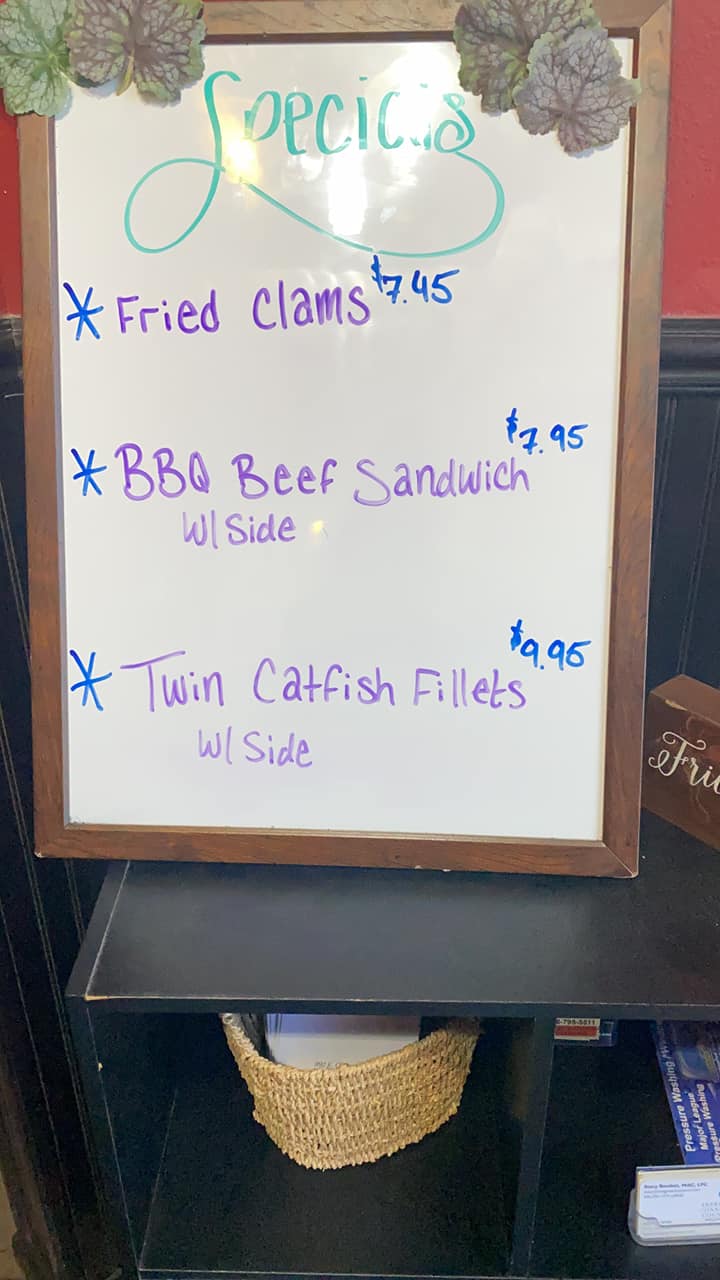 Specials
* Fried Clams $7.45
* BBQ Beef Sandwich $7.95
W/ Side
* Twin Catfish Fillets $9.95
W/ Side
Pressure Washing
Major League
Pressure Washing